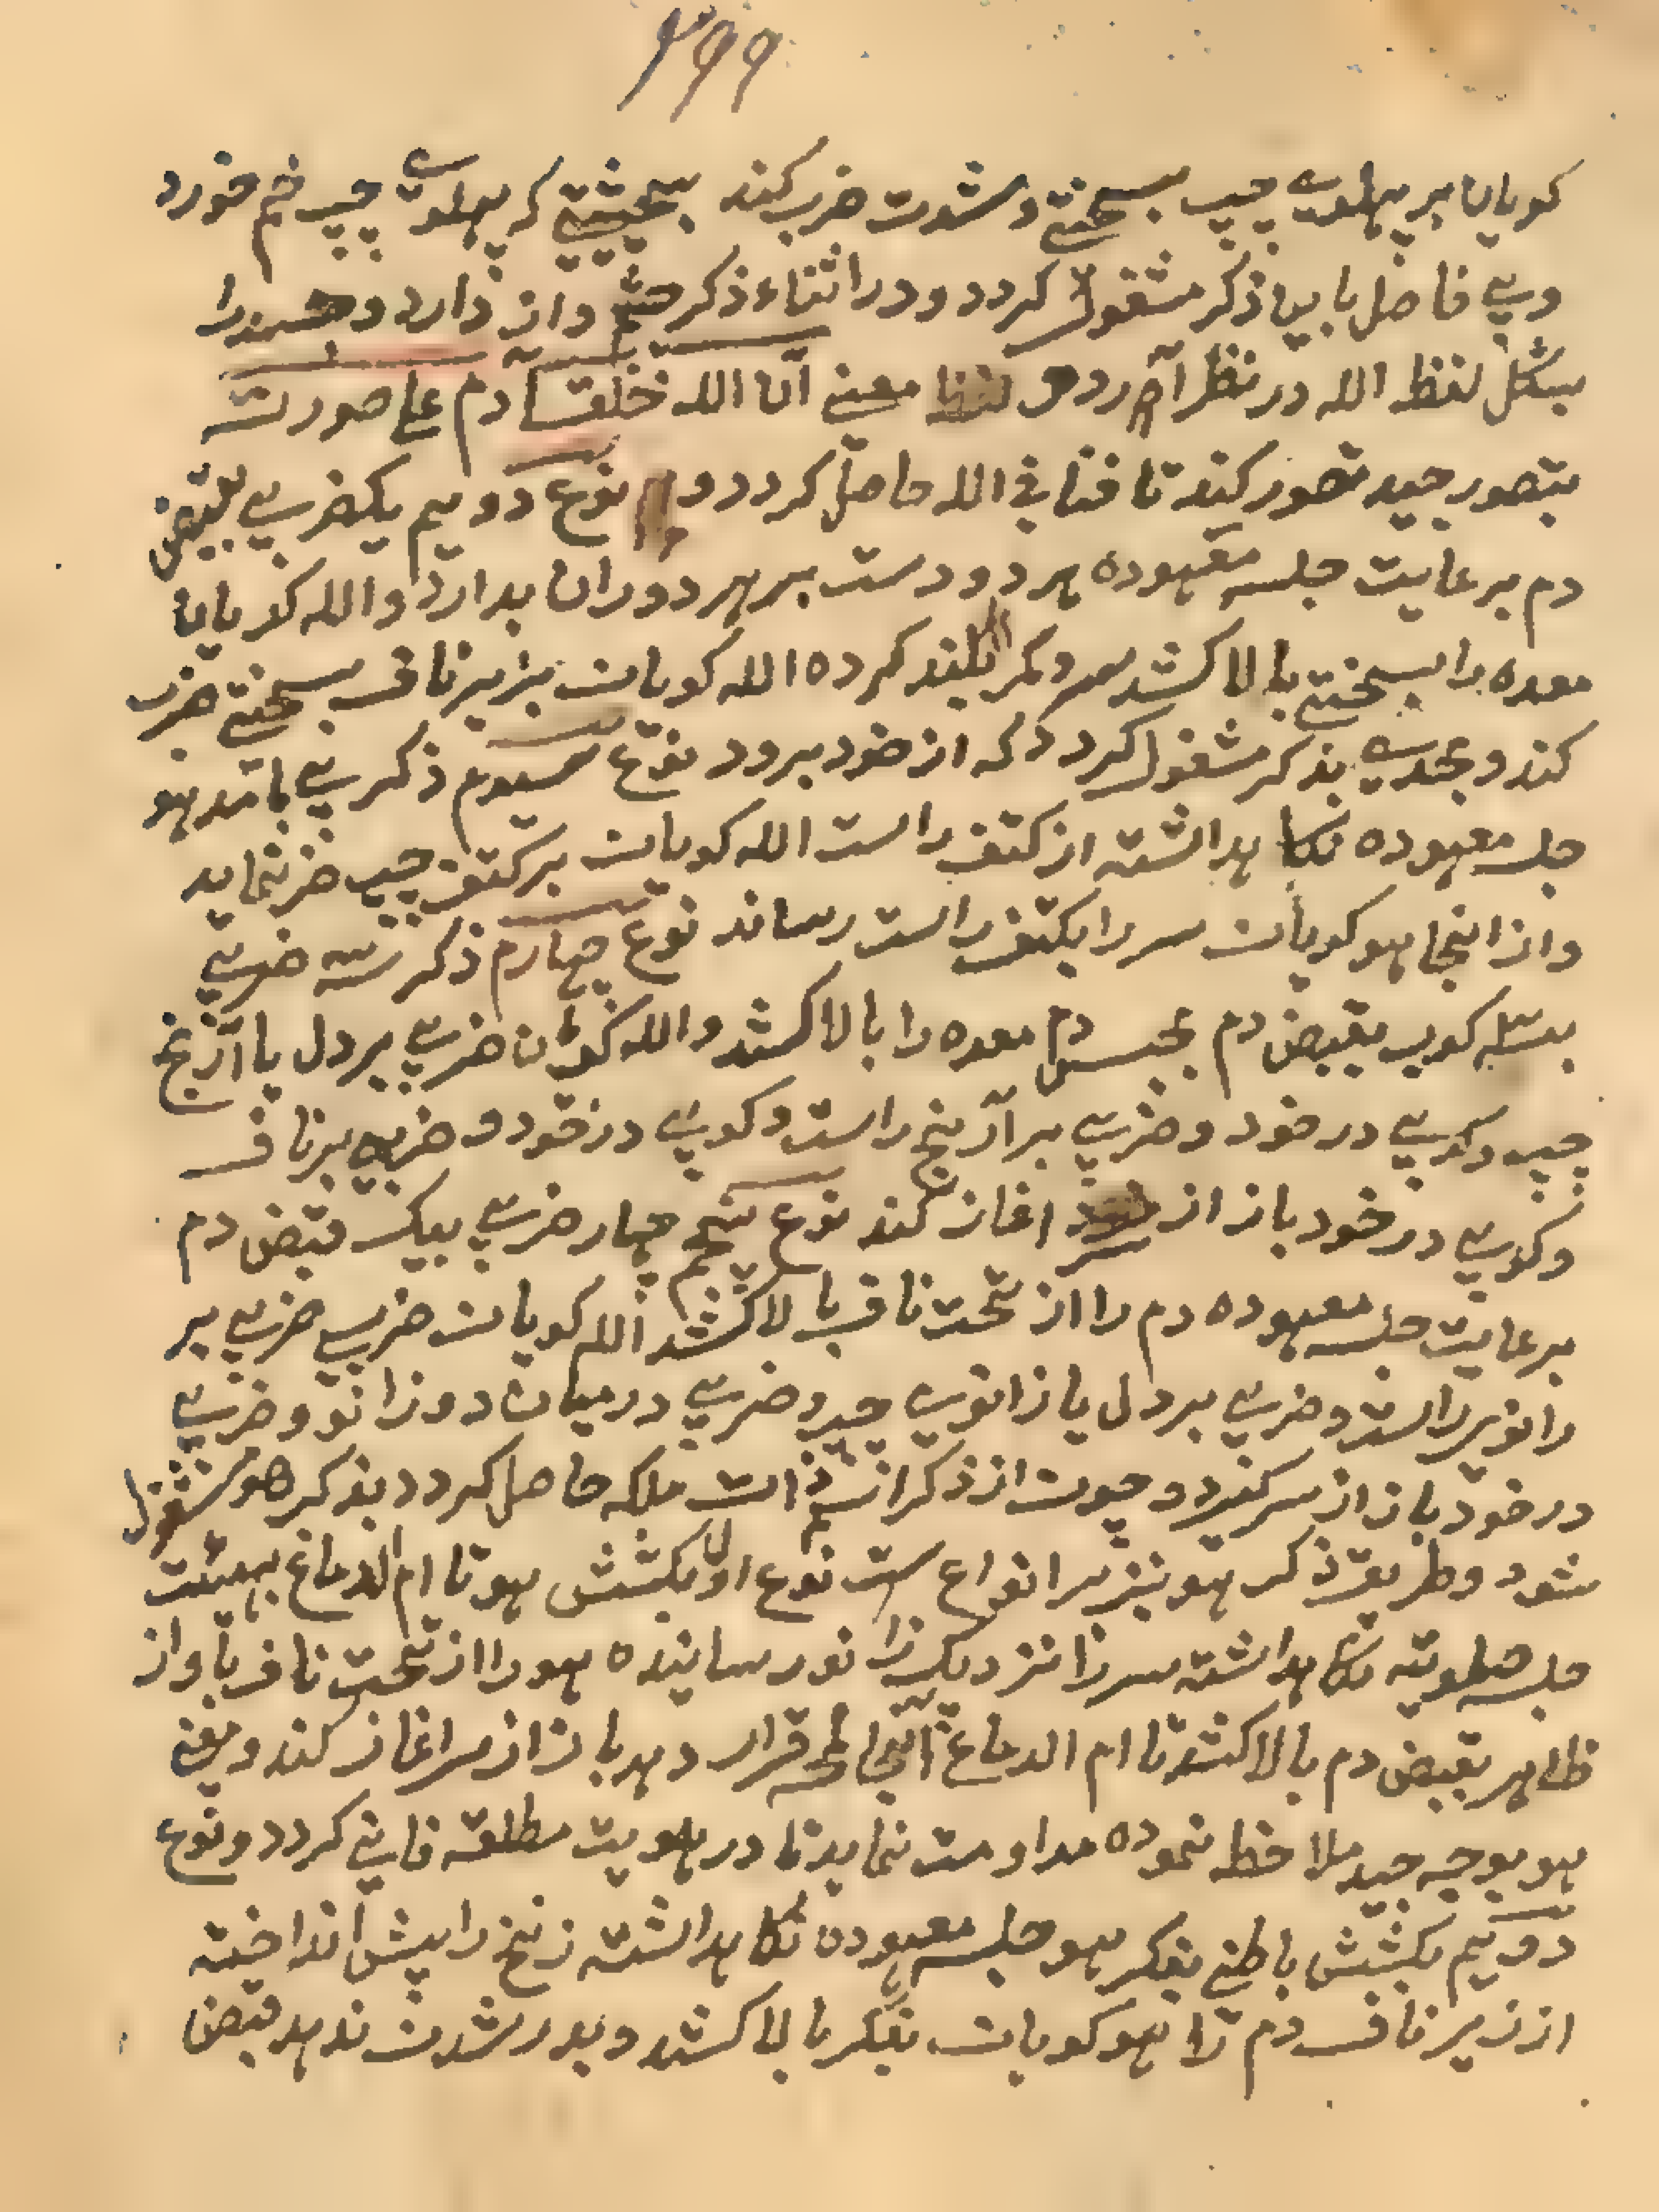 ۴۹۹
کویان بر پهلوے چپ بسختے و شدت ضرب کند بحیثیتے که پهلوے چپ خم خورد
وبے فاصل باین ذکر مشغول کردد و در اثناء ذکر چشم وا نه دارد و جسد را
بشکل لفظ الله در نظر آرد و معنے ان الله خلق آدم علے صورته
بتصور جید تصور کند تا فنا فے الله حاصل کردد و نوع دویم یکضربے بقبض
دم برعایت جلسه معهوده هر دو دست بر هر دو ران بدارد و الله کویان
معده را بسختے بالا کشد سر و کمر بلند کرده الله کویان بزیر ناف بسختے ضرب
کند و بحدے بذکر مشغول کردد که از خود برود نوع سیوم ذکر بے با مد هو
جلسه معهوده نکاهداشته از کتف راست الله کویان بر کتف چپ ضرب نماید
و از انجا هو کویان سر را بکتف راست رساند نوع چهارم ذکر سه ضربے
بقبض دم بحبس دم معده را بالا کشد و الله کویان ضربے بر دل یا آرنج
چپ و کوبے در خود و ضربے بر آرنج راست و کوبے در خود و ضربے بر ناف
و کوبے در خود باز از اغاز کند نوع پنجم چهار ضربے بیک قبض دم
برعایت جلسه معهوده دم را از تحت ناف بالا کشد الله کویان ضربے بر
زانوے راست و ضربے بر دل یا زانوے چپ و ضربے درمیان دو زانو و ضربے
در خود باز از سر کیرد و چون از ذکر اسم ذات ملکه حاصل کردد بذکر هو مشغول
شود و طریق ذکر هو نیز بر انواع ست نوع اول بکشش هو تا ام الدماغ بهیئت
جلسه صلوتیه نکاهداشته سر را نزدیک زانو رسانیده هو را از تحت ناف باواز
ظاهر بقبض دم بالا کشد تا ام الدماغ انجا لمحه قرار دهد باز از سر اغاز کند و معنے
هو بوجه جید ملاحظه نموده مداومت نماید تا در هویت مطلقه فانے کردد و نوع
دویم بکشش باطنے بفکر هو جلسه معهوده نکاهداشته زنخ را پیش انداخته
از زیر ناف دم را هو کویان بفکر بالا کشد و بدر شدن ندهد قبض